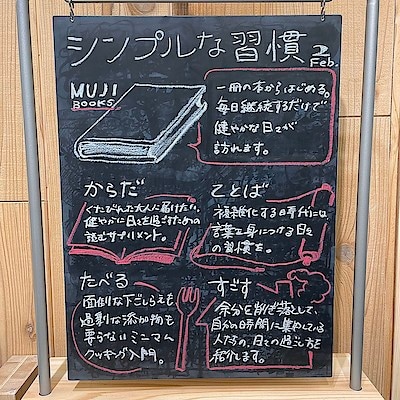 シンプルな習慣
2
Feb.
MUJI
BOOKS
一冊の本からはじめる。
毎日継続するだけで
健やかな日々が
訪れます。
からだ
くたびれた大人に届けたい、
健やかに日々を過ごすための
読むサプリメント。
ことば
複雑化する時代には
言葉を身につける日々
の習慣を。
たべる
面倒な下ごしらえも
過剰な添加物も
要らないミニマム
クッキング入門。
すごす
余分を削ぎ落として、
自分の時間に集わしている
人たちの、日々の過ごし方を
紹介します。